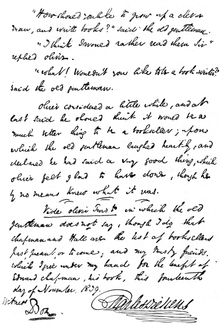 "How should you like to grow up a clever
man, and write books?" said the old gentleman.
"I think I would rather read them sir"
replied oliver.
"What! Wouldn't you like to be a book-writer?"
said the old gentleman.
Oliver considered a little while, and at
last said he should think it would be a
much better thing to be a bookseller; upon
which the old gentleman laughed heartily, and
declared he had said a very good thing, which
oliver felt glad to have done, though he
by no means knew what it was.
Vide oliver Twist in which the old
gentleman does not say, though I do, that
chapman and Hall are the best of booksellers
past, present, or to come; and my trusty friends,
which I give under my hand for the benefit of
Edward chapman, his book, this fourteenth
day of November, 1839.
Witness
Boz
Charles Dickens